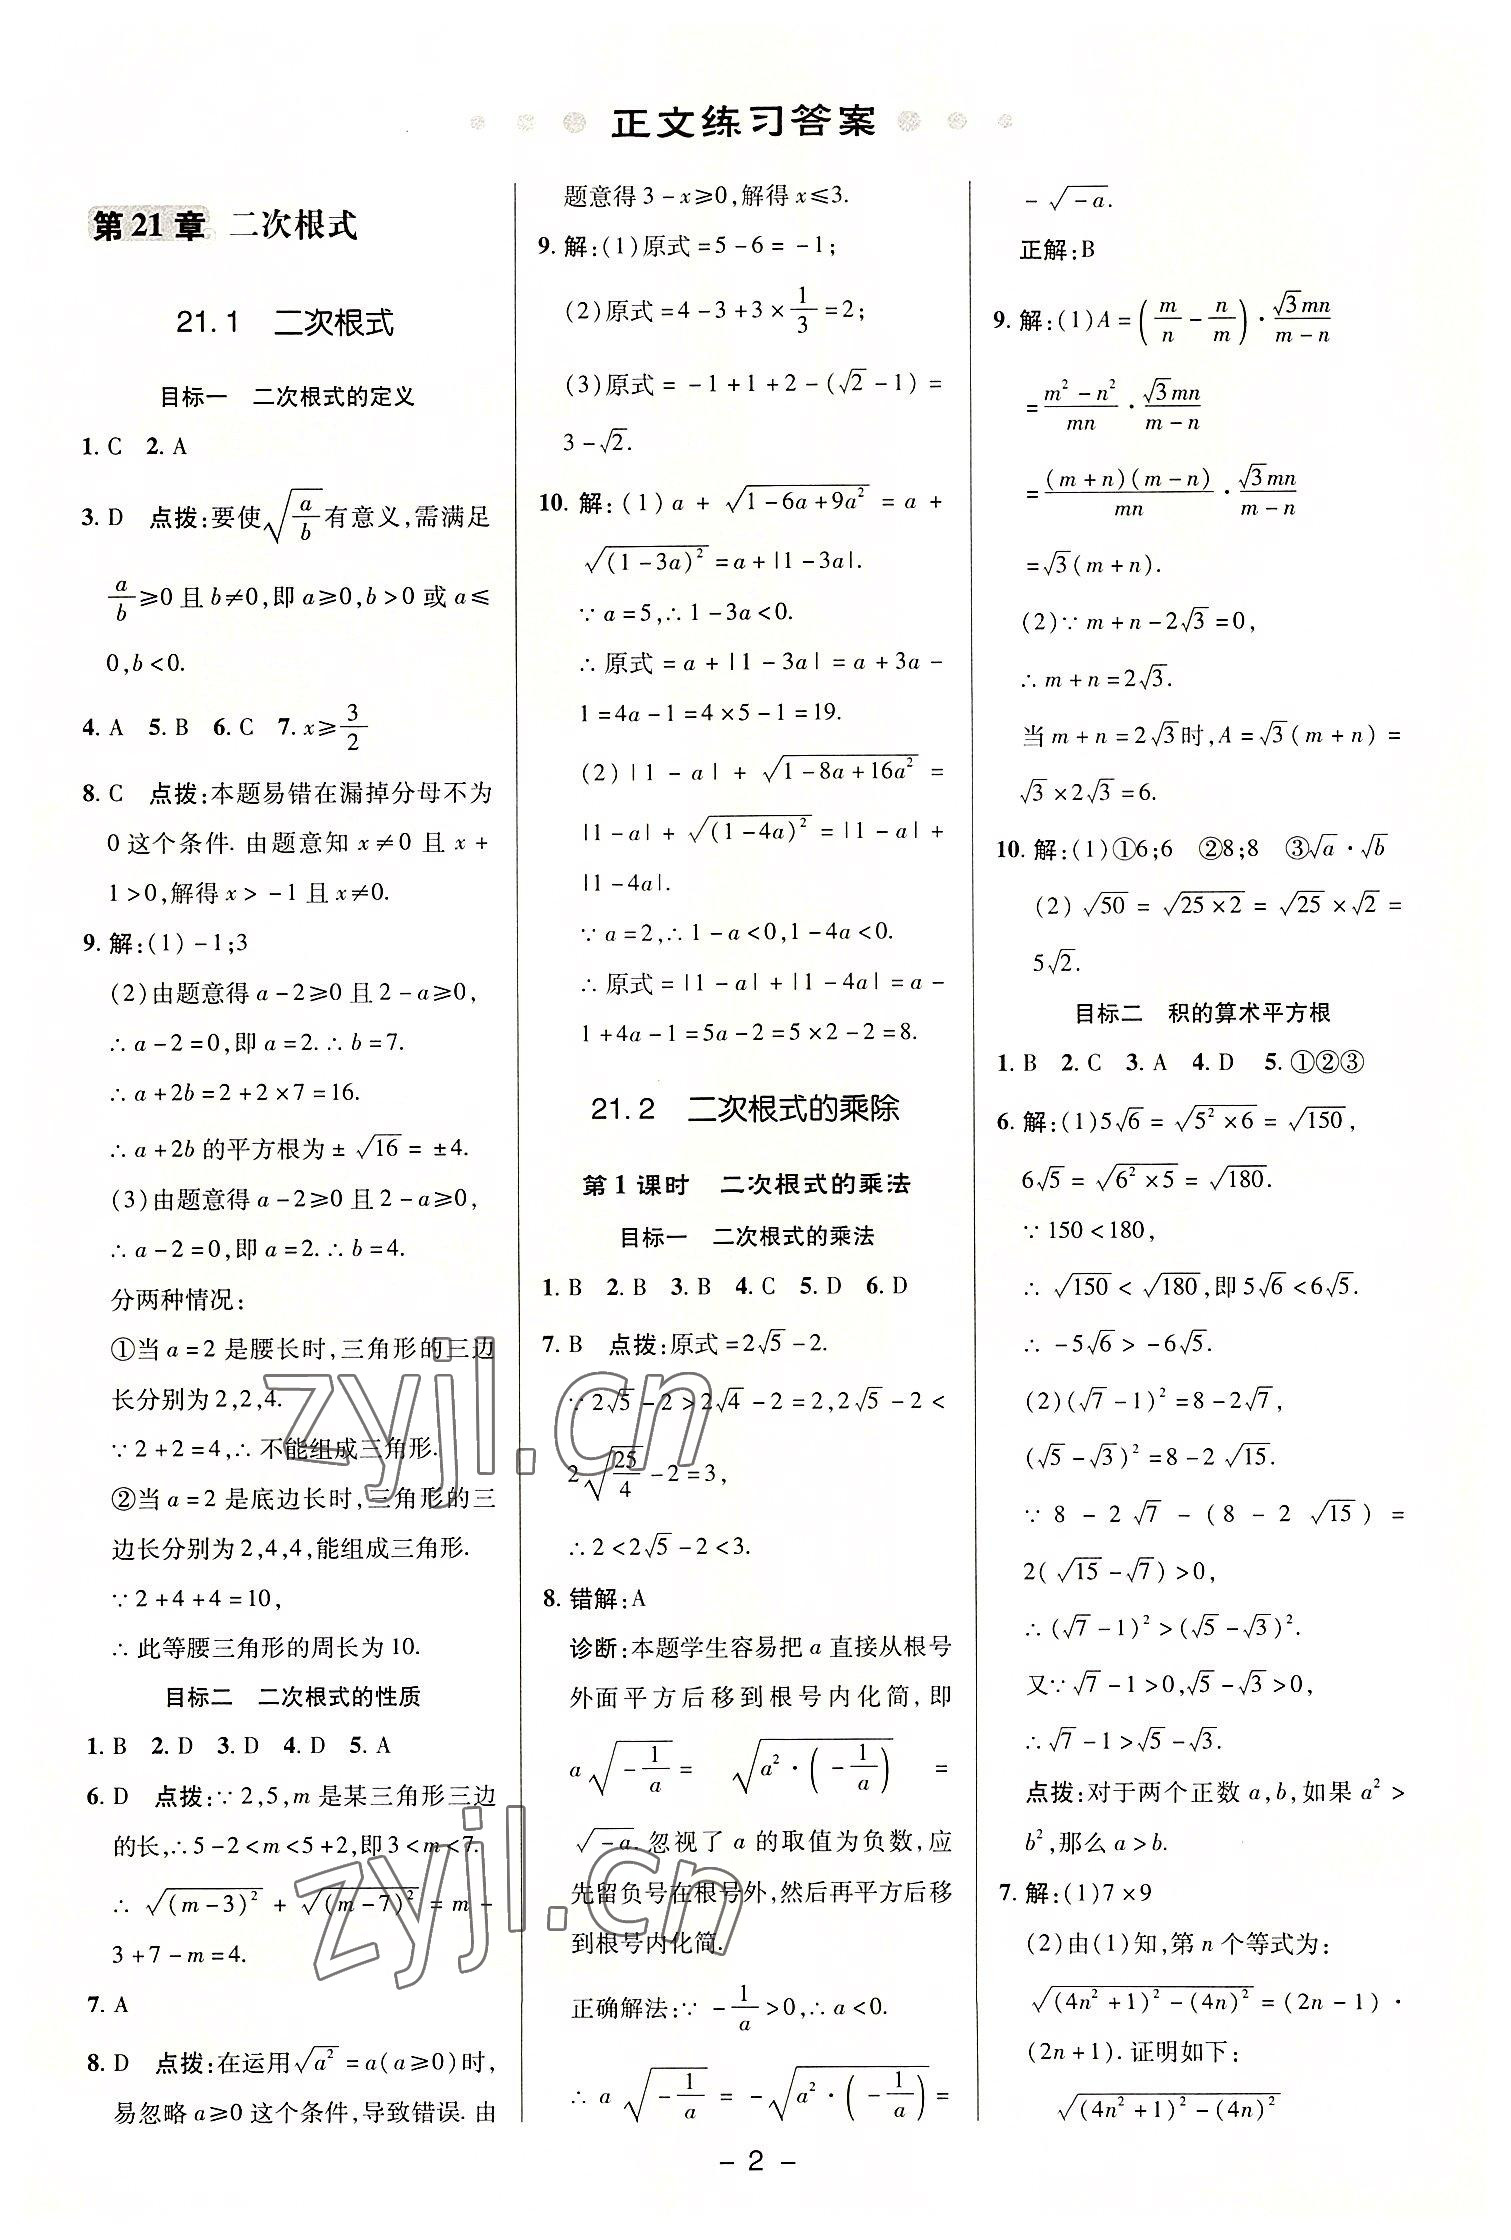 正文练习答案
第21章 二次根式
21.1 二次根式
目标一 二次根式的定义
1. C 2. A
3. D 点拨:要使√(a/b)有意义,需满足
a/b≥0且b≠0,即a≥0,b>0或a≤
0,b<0.
4. A 5. B 6. C 7. x≥3/2
8. C 点拨:本题易错在漏掉分母不为
0这个条件. 由题意知x≠0且x+
1>0,解得x>-1且x≠0.
9. 解:(1)-1;3
(2)由题意得a-2≥0且2-a≥0,
∴a-2=0,即a=2.∴b=7.
∴a+2b=2+2×7=16.
∴a+2b的平方根为±√16=±4.
(3)由题意得a-2≥0且2-a≥0,
∴a-2=0,即a=2.∴b=4.
分两种情况:
①当a=2是腰长时,三角形的三边
长分别为2,2,4.
∵2+2=4,∴不能组成三角形.
②当a=2是底边长时,三角形的三
边长分别为2,4,4,能组成三角形.
∵2+4+4=10,
∴此等腰三角形的周长为10.
目标二 二次根式的性质
1. B 2. D 3. D 4. D 5. A
6. D 点拨:∵2,5,m是某三角形三边
的长,∴5-2<m<5+2,即3<m<7.
∴√((m-3)²)+√((m-7)²)=m-
3+7-m=4.
7. A
8. D 点拨:在运用√(a²)=a(a≥0)时,
易忽略a≥0这个条件,导致错误. 由
题意得3-x≥0,解得x≤3.
9. 解:(1)原式=5-6=-1;
(2)原式=4-3+3×1/3=2;
(3)原式=-1+1+2-(√2-1)=
3-√2.
10. 解:(1)a+√(1-6a+9a²)=a+
√((1-3a)²)=a+|1-3a|.
∵a=5,∴1-3a<0.
∴原式=a+|1-3a|=a+3a-
1=4a-1=4×5-1=19.
(2)|1-a|+√(1-8a+16a²)=
|1-a|+√((1-4a)²)=|1-a|+
|1-4a|.
∵a=2,∴1-a<0,1-4a<0.
∴原式=|1-a|+|1-4a|=a-
1+4a-1=5a-2=5×2-2=8.
21.2 二次根式的乘除
第1课时 二次根式的乘法
目标一 二次根式的乘法
1. B 2. B 3. B 4. C 5. D 6. D
7. B 点拨:原式=2√5-2.
∵2√5-2>2√4-2=2,2√5-2<
2√(25/4)-2=3,
∴2<2√5-2<3.
8. 错解:A
诊断:本题学生容易把a直接从根号
外面平方后移到根号内化简,即
a√(-1/a)=√(a²·(-1/a))=
√(-a).忽视了a的取值为负数,应
先留负号在根号外,然后再平方后移
到根号内化简.
正确解法:∵-1/a>0,∴a<0.
∴a√(-1/a)=-√(a²·(-1/a))=
-√(-a).
正解:B
9. 解:(1)A=(m/n-n/m)·√3mn/(m-n)
=(m²-n²)/mn·√3mn/(m-n)
=(m+n)(m-n)/mn·√3mn/(m-n)
=√3(m+n).
(2)∵m+n-2√3=0,
∴m+n=2√3.
当m+n=2√3时,A=√3(m+n)=
√3×2√3=6.
10. 解:(1)①6;6 ②8;8 ③√a·√b
(2)√50=√(25×2)=√25×√2=
5√2.
目标二 积的算术平方根
1. B 2. C 3. A 4. D 5. ①②③
6. 解:(1)5√6=√(5²×6)=√150,
6√5=√(6²×5)=√180.
∵150<180,
∴√150<√180,即5√6<6√5.
∴-5√6>-6√5.
(2)(√7-1)²=8-2√7,
(√5-√3)²=8-2√15.
∵8-2√7-(8-2√15)=
2(√15-√7)>0,
∴(√7-1)²>(√5-√3)².
又∵√7-1>0,√5-√3>0,
∴√7-1>√5-√3.
点拨:对于两个正数a,b,如果a²>
b²,那么a>b.
7. 解:(1)7×9
(2)由(1)知,第n个等式为:
√((4n²+1)²-(4n)²)=(2n-1)·
(2n+1). 证明如下:
√((4n²+1)²-(4n)²)
- 2 -
zyjl.cn
zyjl.cn